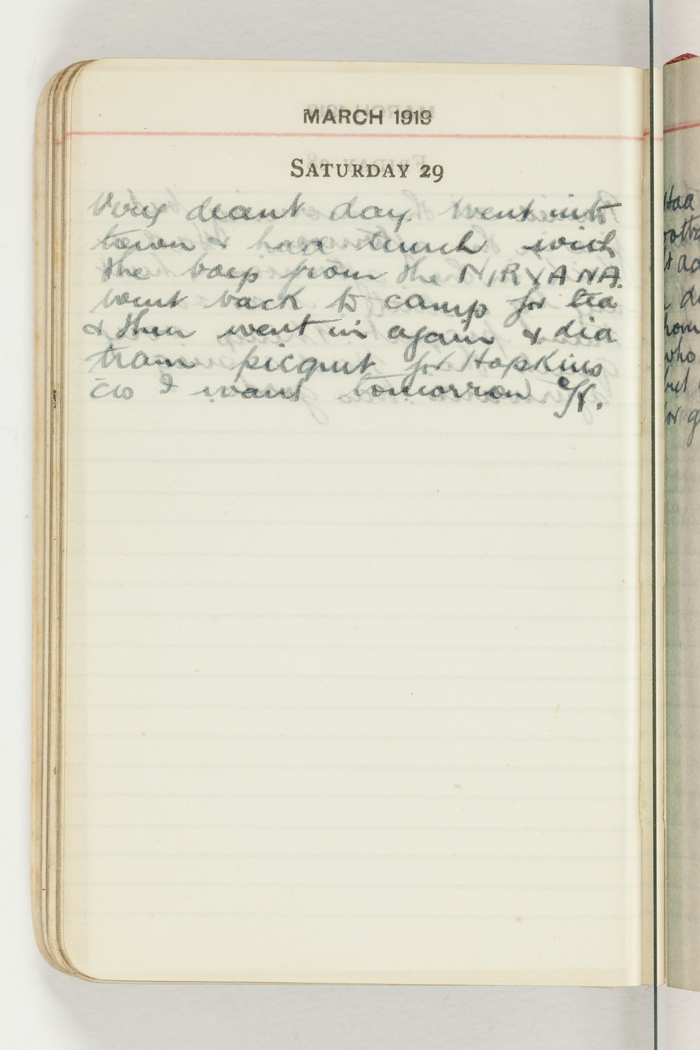 MARCH 1919
SATURDAY 29
Very decent day. Went into
town & had lunch with
the boys from the NIRVANA.
Went back to camp for tea
& then went in again & did
tram picquet for Hopkins
as I want tomorrow off.